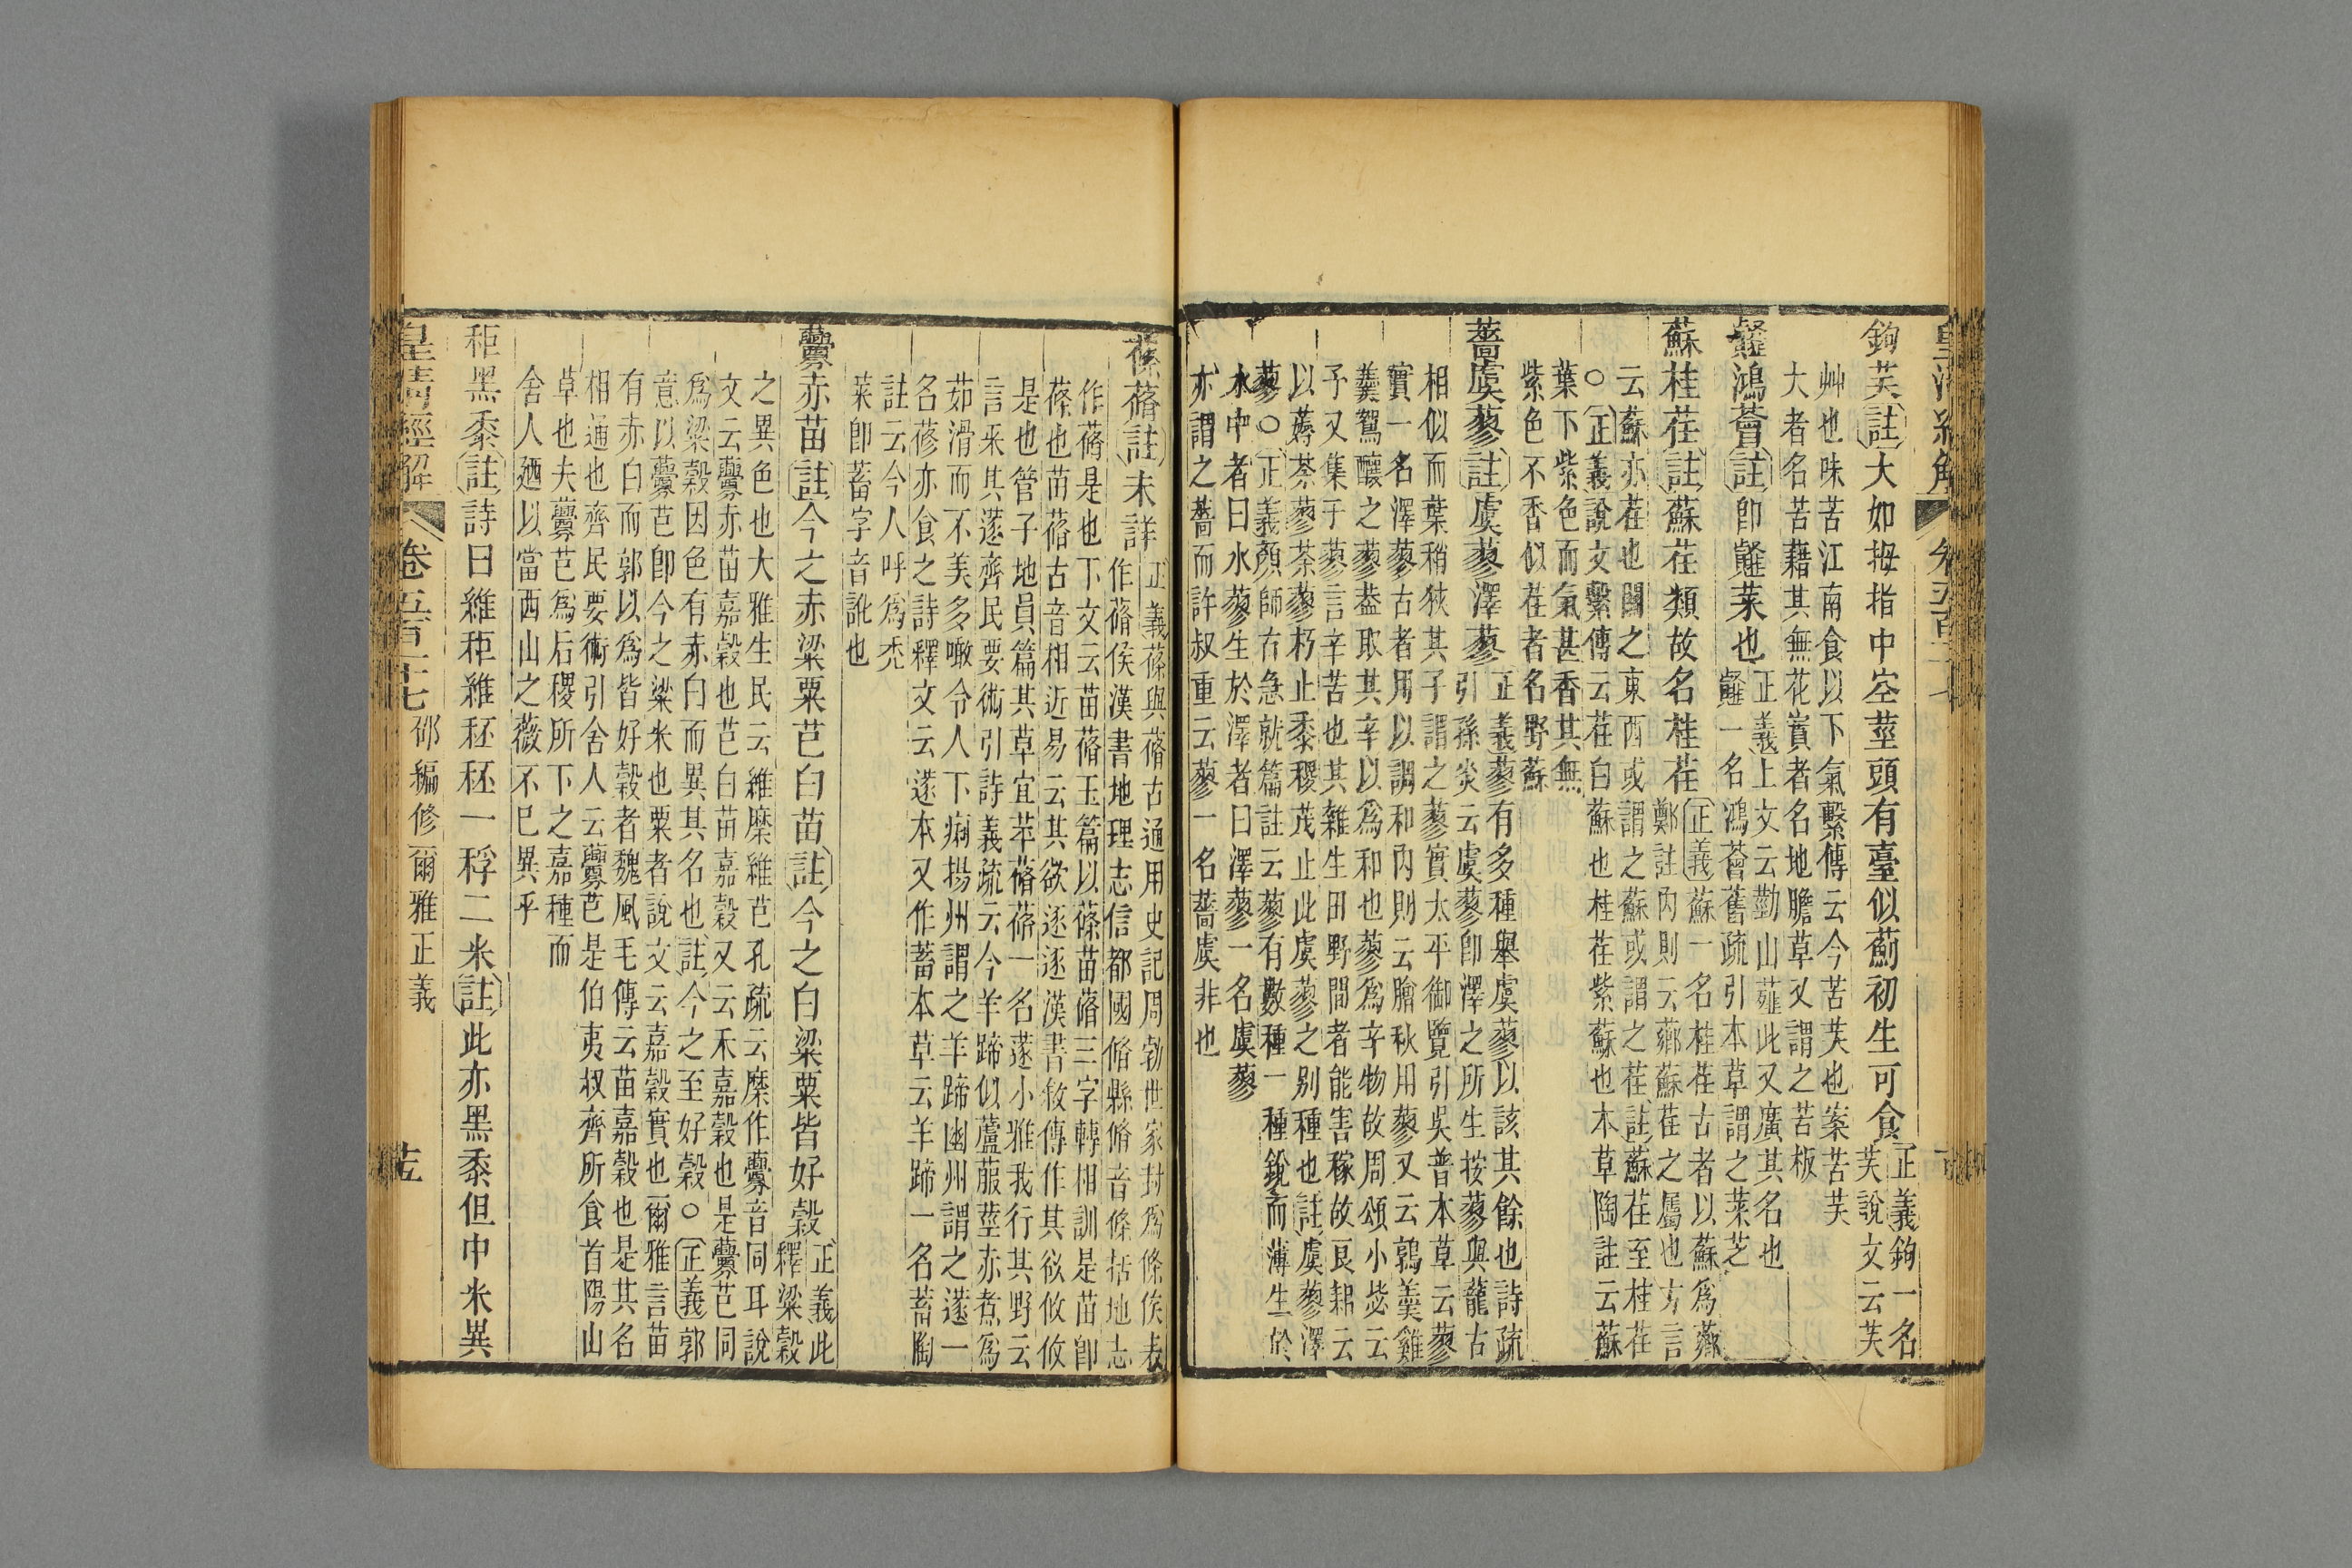 皇清經解
卷五百二十七
鉤芺註大如拇指中空莖頭有臺似薊初生可食正義鉤一名
芺說文云芺
艸也味苦江南食以下氣繫傳云今苦芺也案苦芺
大者名苦藉其無花實者名地膽草又謂之苦板
䪥鴻薈註卽䪥菜也正義上文云勤山䪥此又廣其名也
䪥一名鴻薈舊疏引本草謂之菜芝
蘇桂荏註蘇荏類故名桂荏正義蘇一名桂荏古者以蘇爲燕
鄭註內則云薌蘇荏之屬也方言
云蘇亦荏也關之東西或謂之蘇或謂之荏註蘇荏至桂荏
○正義說文繫傳云荏白蘇也桂荏紫蘇也本草陶註云蘇
葉下紫色而氣甚香其無
紫色不香似荏者名野蘇
薔虞蓼註虞蓼澤蓼正義蓼有多種舉虞蓼以該其餘也詩疏
引孫炎云虞蓼卽澤之所生按蓼與蘢古
相似而葉稍狹其子謂之蓼實太平御覽引吳普本草云蓼
實一名澤蓼古者用以調和內則云膾秋用蓼又云鶉羹雞
羹鴽釀之蓼葢取其辛以爲和也蓼爲辛物故周頌小毖云
予又集于蓼言辛苦也其雜生田野間者能害稼故良耜云
以薅荼蓼荼蓼朽止黍稷茂止此虞蓼之別種也註虞蓼澤
蓼○正義顏師古急就篇註云蓼有數種一種銳而薄生於
水中者曰水蓼生於澤者曰澤蓼一名虞蓼
亦謂之薔而許叔重云蓼一名薔虞非也
蓧蓨註未詳正義蓧與蓨古通用史記周勃世家封爲條侯表
作蓨侯漢書地理志信都國脩縣脩音條括地志
作蓨是也下文云苗蓨玉篇以蓧苗蓨三字轉相訓是苗卽
蓧也苗蓨古音相近易云其欲逐逐漢書敘傳作其欲攸攸
是也管子地員篇其草宜苹蓨蓨一名蓫小雅我行其野云
言采其蓫齊民要術引詩義疏云今羊蹄似蘆菔莖赤煮爲
茹滑而不美多噉令人下痢揚州謂之羊蹄幽州謂之蓫一
名蓚亦食之詩釋文云蓫本又作蓄本草云羊蹄一名蓄陶
註云今人呼爲禿
菜卽蓄字音訛也
虋赤苗註今之赤粱粟芑白苗註今之白粱粟皆好穀正義此
釋粱穀
之異色也大雅生民云維穈維芑孔疏云穈作虋音同耳說
文云虋赤苗嘉穀也芑白苗嘉穀又云禾嘉穀也是虋芑同
爲粱穀因色有赤白而異其名也註今之至好穀○正義郭
意以虋芑卽今之粱米也粟者說文云嘉穀實也爾雅言苗
有赤白而郭以爲皆好穀者魏風毛傳云苗嘉穀也是其名
相通也齊民要術引舍人云虋芑是伯夷叔齊所食首陽山
草也夫虋芑爲后稷所下之嘉種而
舍人廼以當西山之薇不已異乎
秬黑黍註詩曰維秬維秠秠一稃二米註此亦黑黍但中米異
皇清經解
卷五百二十七 邵編修爾雅正義